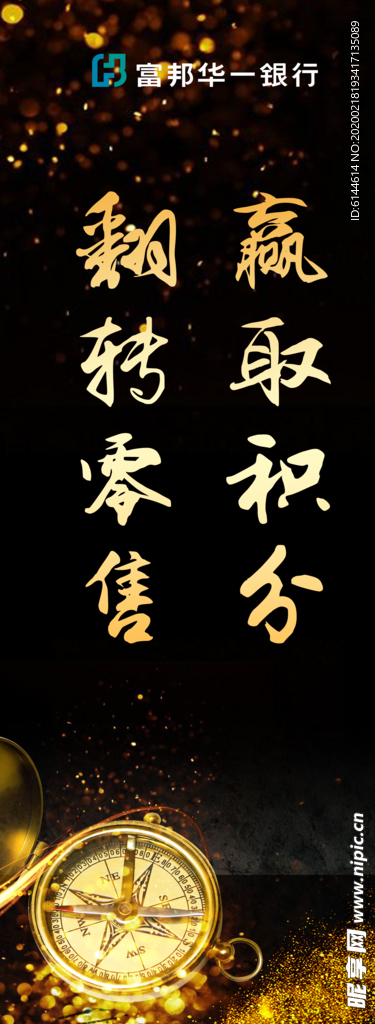 富邦华一银行
赢取积分
翻转零售
ID:6144614 NO:20200218193417135089
昵享网 www.nipic.cn